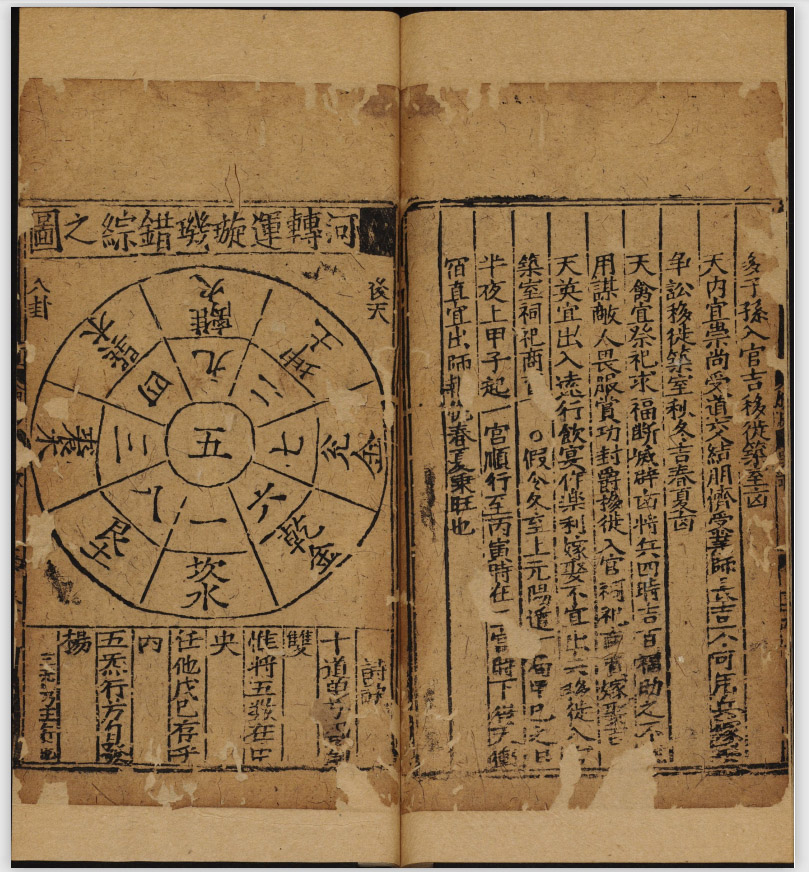 多子孫入官吉移徙築室凶
天内宜崇尚受道交結朋儕受業師長吉不可用兵嫁娶
爭訟移徙築室秋冬吉春夏凶
天禽宜祭祀求福斷滅群凶將兵四時吉百福助之不
用謀敵人畏服賞功封爵移徙入官祠祀商賈嫁娶吉
天英宜出入遠行飲宴作樂利嫁娶不宜出兵移徙入官
築室祠祀商賈 ○假令冬至上元陽遁一局甲己之日
半夜上甲子起一宮順行至丙寅時在一宮時下
宿直宜出師春夏乘旺也
河轉運璇璣錯綜之圖
後天
八卦
離火 九
坤土 二
兌金 七
乾金 六
坎水 一
艮土 八
震木 三
巽木 四
五
詩訣
十道
雙
惟將五數在中
央
任他戊己存乎
內
五炁行方自發
揚